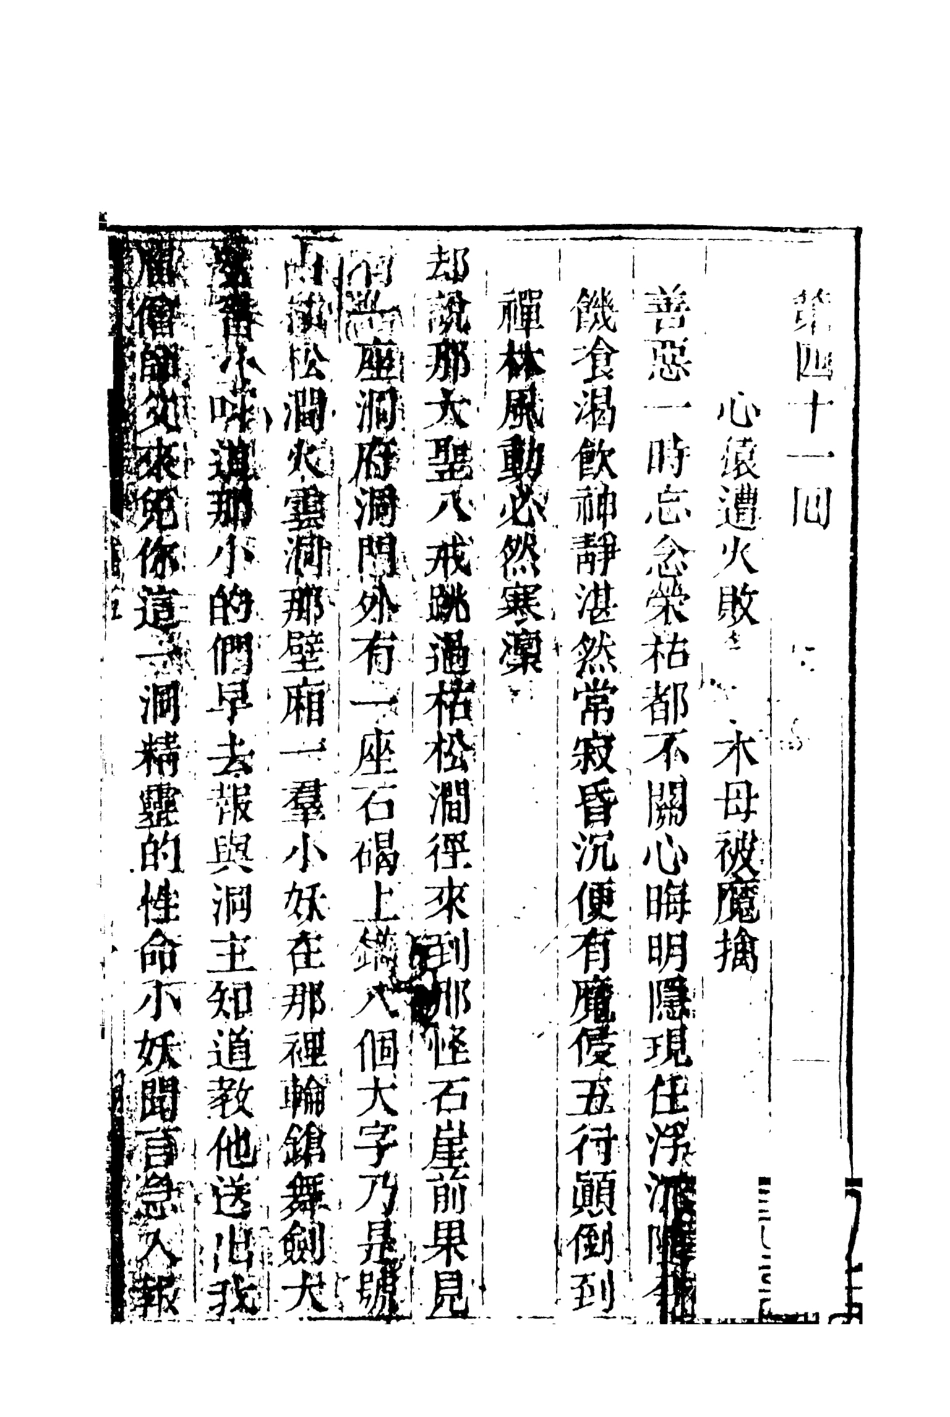 第四十一回
心猿遭火敗 木母被魔擒
善惡一時忘念榮枯都不關心晦明隱現任浮沉隨分
饑飡渴飲神靜湛然常寂昏沉便有魔侵五行顛倒到
禪林風動必然寒凜
却說那大聖八戒跳過枯松澗徑來到那怪石崖前果見
有一座洞府洞門外有一座石碣上鐫八個大字乃是號
山枯松澗火雲洞那壁廂一羣小妖在那裡輪鎗舞劍犬
小叫道那小的們早去報與洞主知道教他送出我
僧師父來免你這一洞精靈的性命小妖聞言急入報